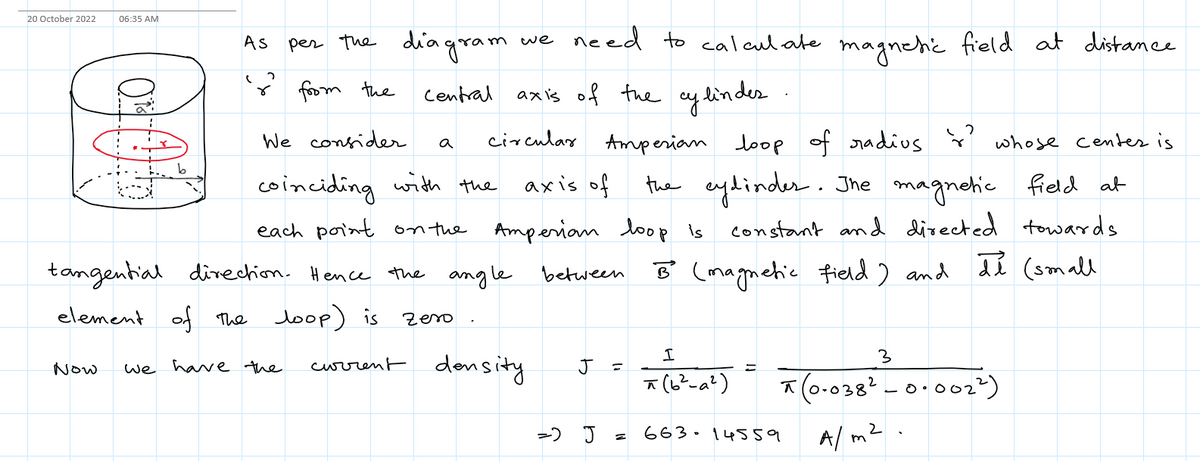 20 October 2022 06:35 AM
As per the diagram we need to calculate magnetic field at distance
'r' from the central axis of the cylinder.
a
We consider a circular Amperian loop of radius 'r' whose center is
r
b
coinciding with the axis of the cylinder. The magnetic field at
each point on the Amperian loop is constant and directed towards
tangential direction. Hence the angle between B⃗ (magnetic field) and dl⃗ (small
element of the loop) is zero.
Now we have the current density J = I / π(b²-a²) = 3 / π(0.038² - 0.002²)
=) J = 663.14559 A/m².